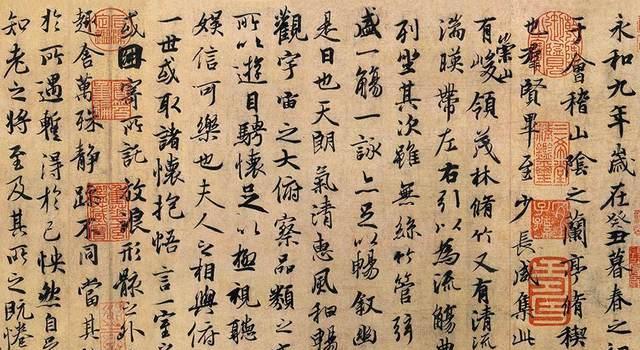 永和九年歲在癸丑暮春之初
于會稽山陰之蘭亭脩稧
也羣賢畢至少長咸集此
有崇山峻領茂林脩竹又有清流
湍暎帶左右引以為流觴曲
列坐其次雖無絲竹管弦
盛一觴一詠亦足以暢敘幽
是日也天朗氣清惠風和暢
觀宇宙之大俯察品類之
所以遊目騁懷足以極視聽
娛信可樂也夫人之相與俯
一世或取諸懷抱悟言一室
或因寄所託放浪形骸之外
趣舍萬殊靜躁不同當其
於所遇暫得於己怏然自足
知老之將至及其所之既惓